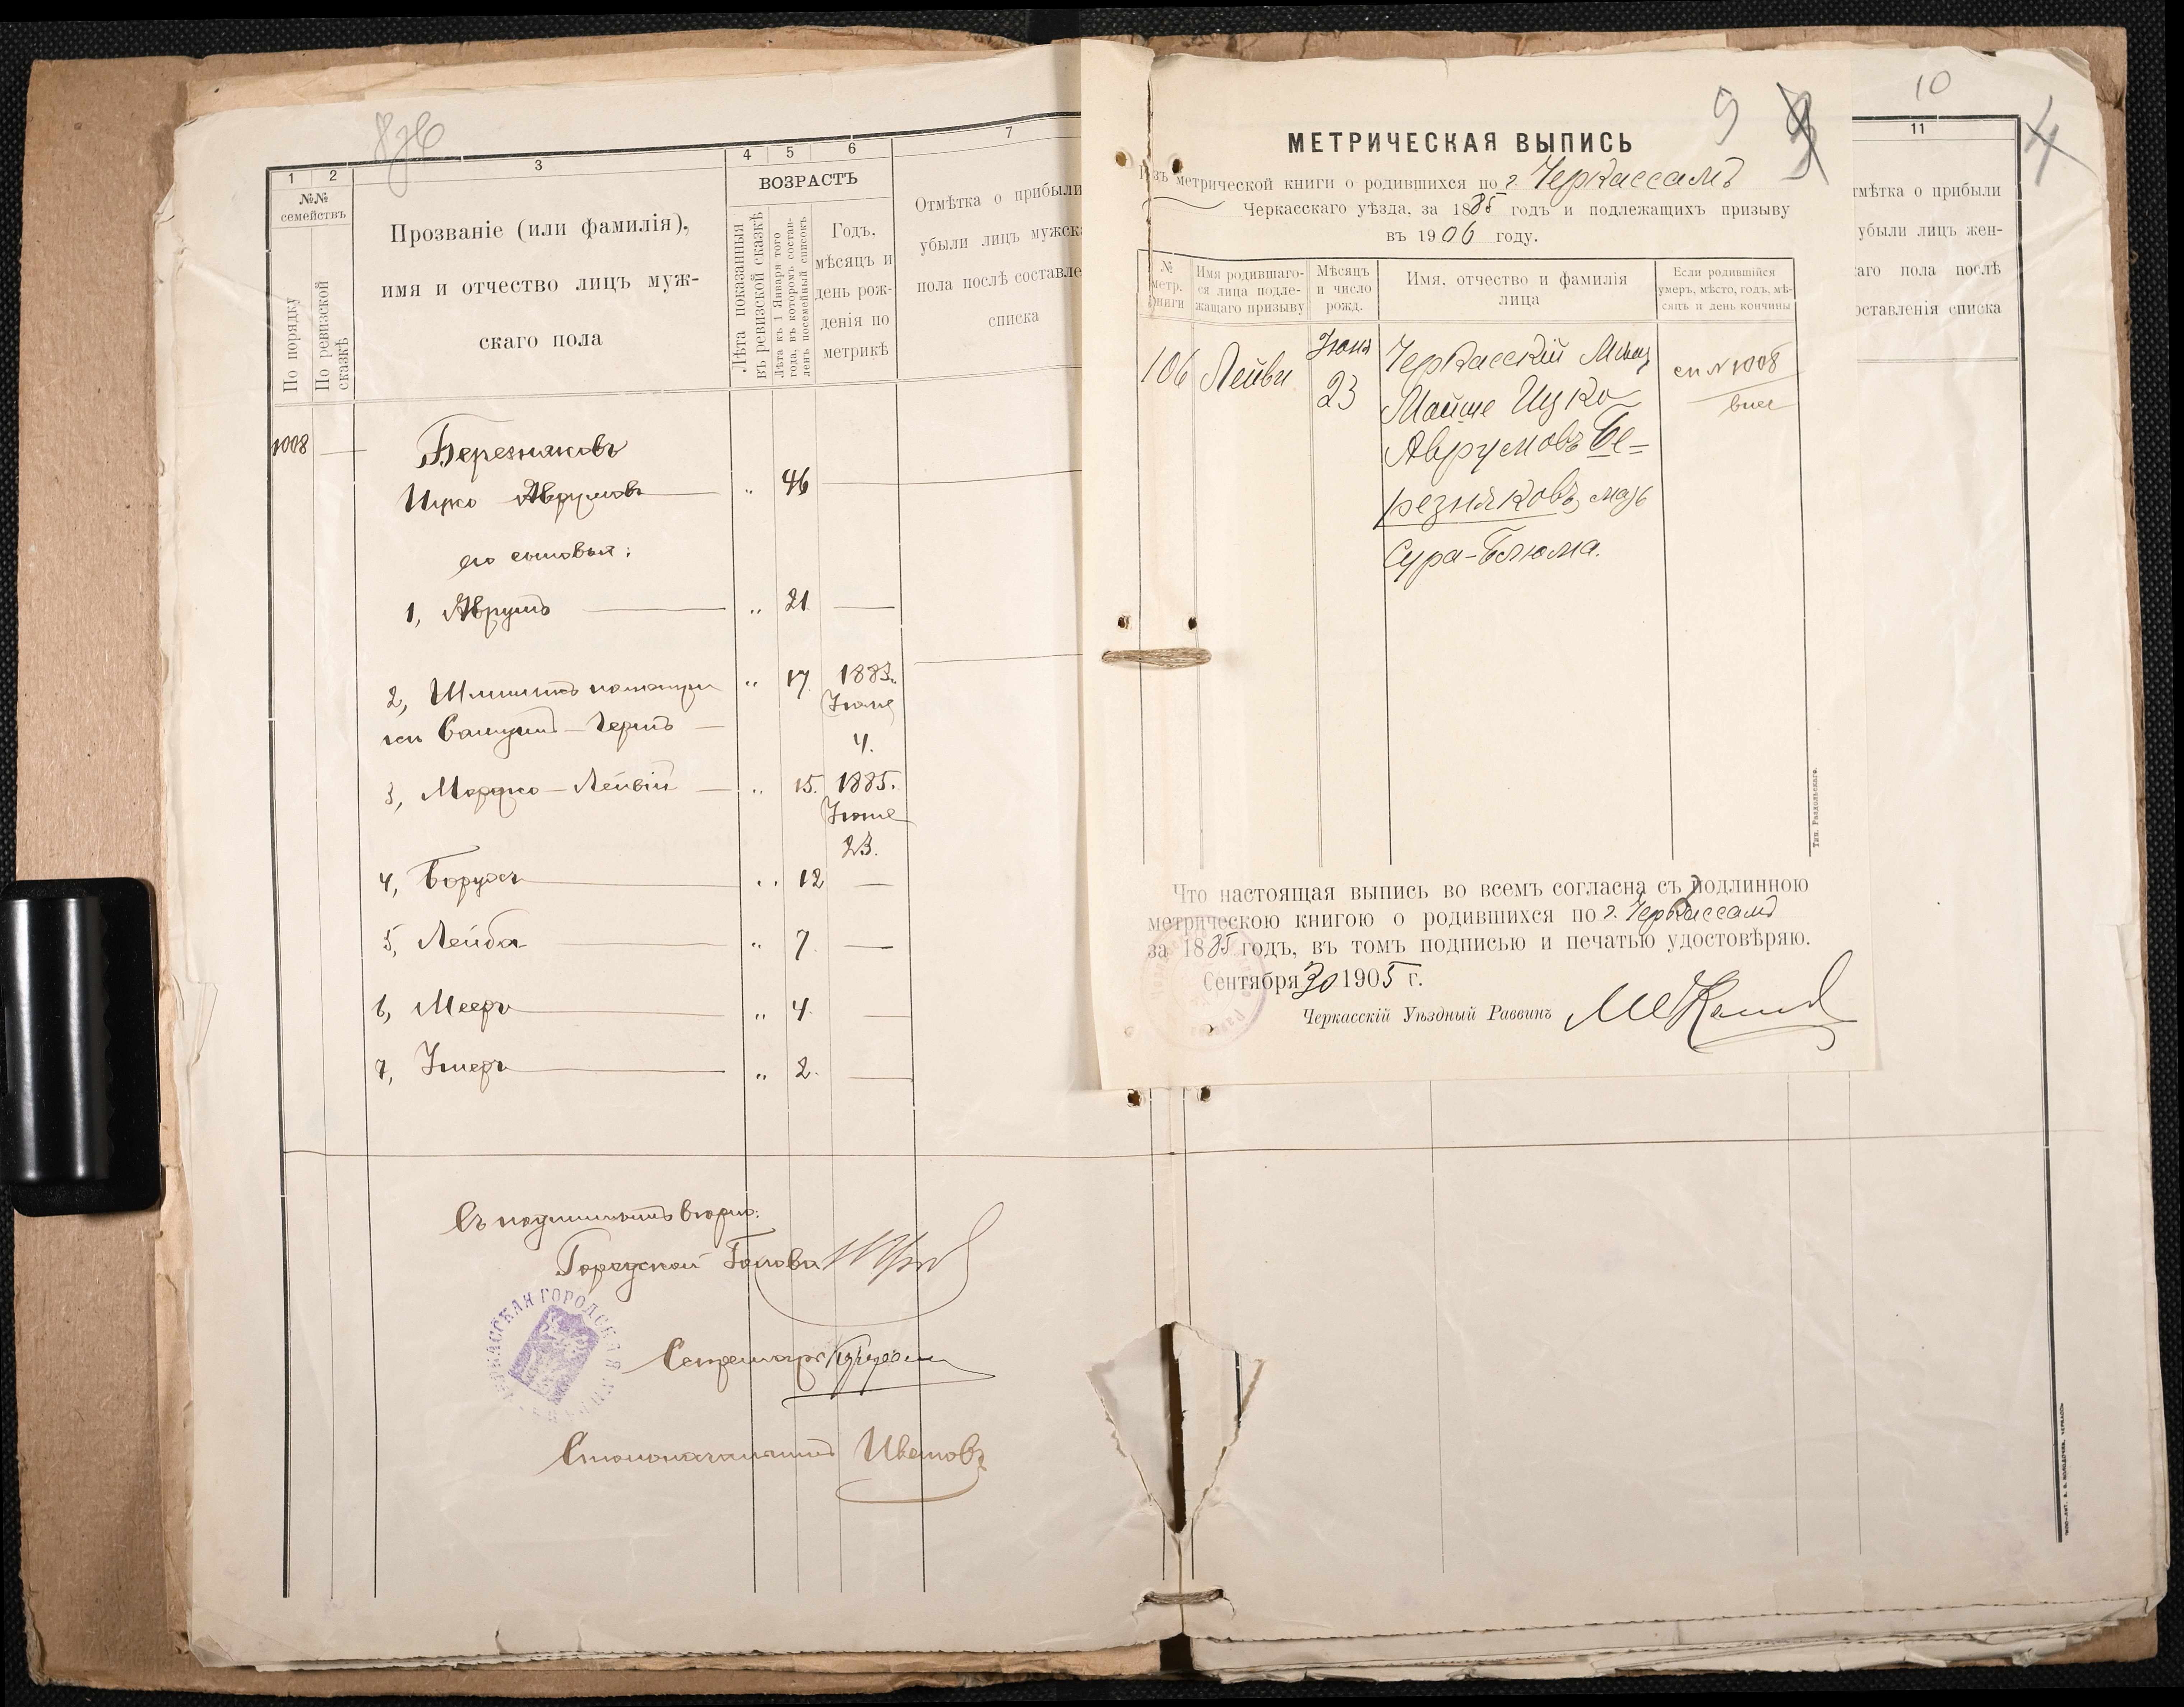 1
2
3
4
5
6
7
№№
семействъ
По порядку
По ревизской
сказкѣ
Прозваніе (или фамилія),
имя и отчество лицъ муж-
скаго пола
ВОЗРАСТЪ
Лѣта показанныя
въ ревизской сказкѣ
Лѣта къ 1 Января того
года, въ которомъ состав-
ленъ посемейный списокъ
Годъ,
мѣсяцъ и
день рож-
денія по
метрикѣ
Отмѣтка о прибыли
убыли лицъ мужск
пола послѣ составле
списка
1008 Березняковъ
Ицко Аврумовъ „ 46
его сыновья:
1, Аврумъ „ 21
2, „ 17. 1883.
Іюня
4.
3, Мошко-Лейвій „ 15. 1885.
Іюня
23.
4, Борухъ „ 12
5, Лейба „ 7
6, Мееръ „ 4.
7, „ 2.
Съ подлиннымъ вѣрно:
Городской Голова
Секретарь
Столоначальникъ Ивановъ
9
10
4
МЕТРИЧЕСКАЯ ВЫПИСЬ
Изъ метрической книги о родившихся по г. Черкассамъ
Черкасскаго уѣзда, за 1885 годъ и подлежащихъ призыву
въ 1906 году.
№
метр.
книги
Имя родившаго-
ся лица подле-
жащаго призыву
Мѣсяцъ
и число
рожд.
Имя, отчество и фамилія
лица
Если родившійся
умеръ, мѣсто, годъ, мѣ-
сяцъ и день кончины
106 Лейви Іюня
23
Черкасскій Мѣщ
Мойше Ицко
Аврумовъ Бе-
резняковъ, мать
Сура-Блюма.
сп № 1008
внес
Тип. Раздольскаго.
Что настоящая выпись во всемъ согласна съ подлинною
метрическою книгою о родившихся по г. Черкассамъ
за 1885 годъ, въ томъ подписью и печатью удостовѣряю.
Сентября 30 1905 г.
Черкасскій Уѣздный Раввинъ
11
тмѣтка о прибыли
убыли лицъ жен-
каго пола послѣ
оставленія списка